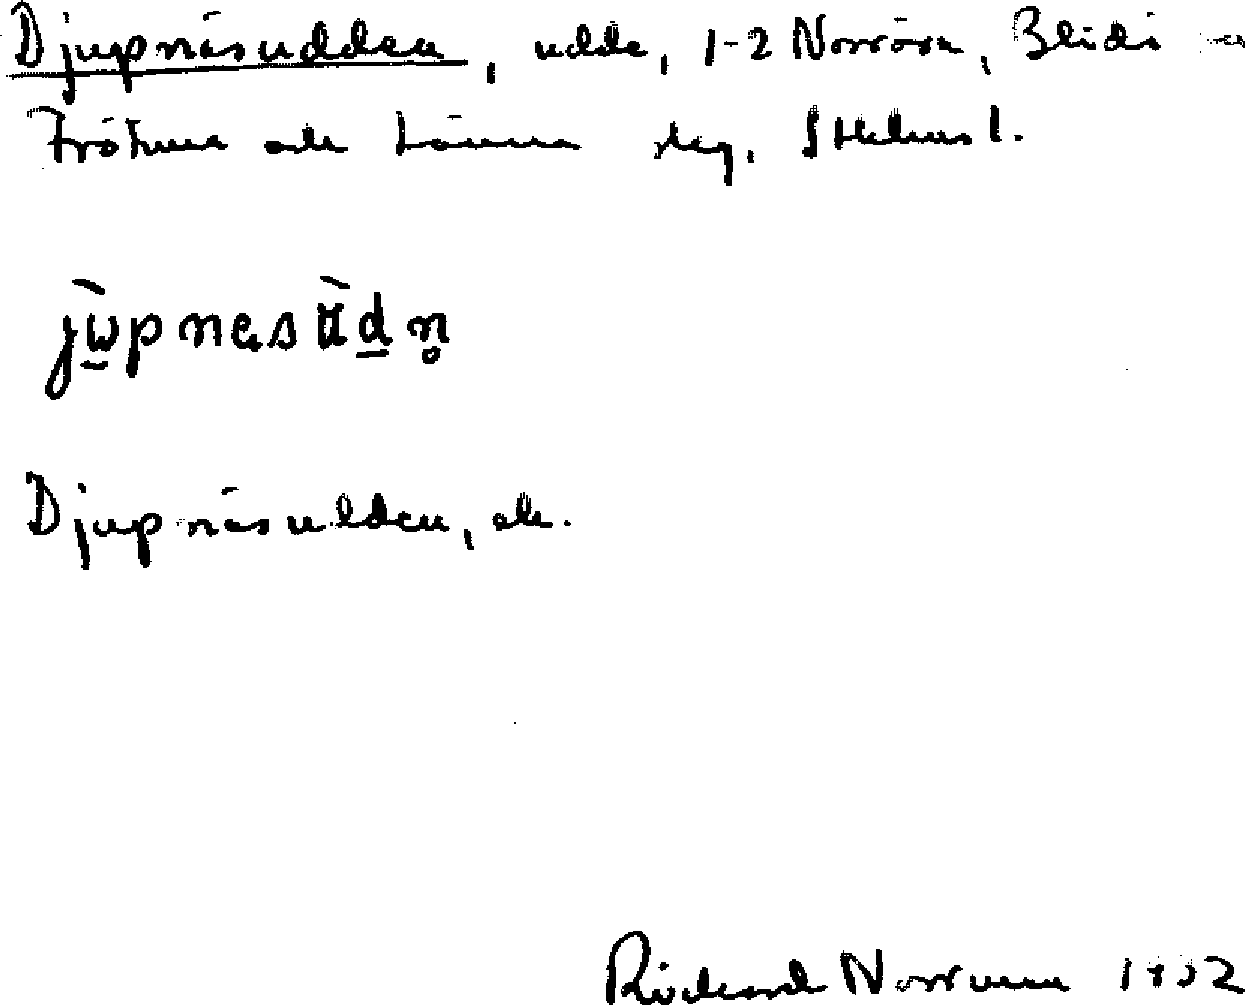 Djupnäsudden, udde, 1-2 Norröra, Blidö sn
Frötuna och Länna skg, Sthlms l.
jùpnäsùdn̥
Djupnäsudden, ek.
Rickard Norrman 1932